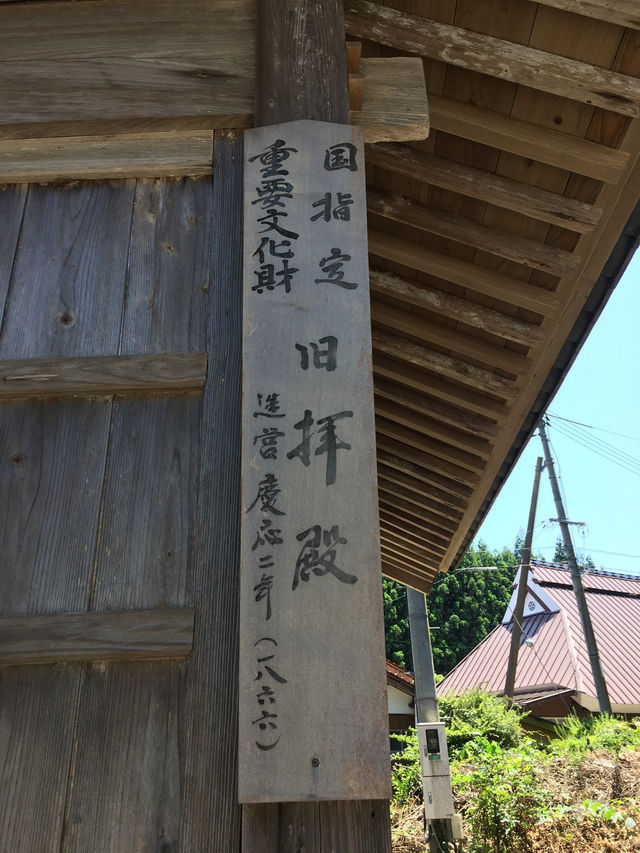 国指定
重要文化財
旧拝殿
造営慶応二年(一八六六)